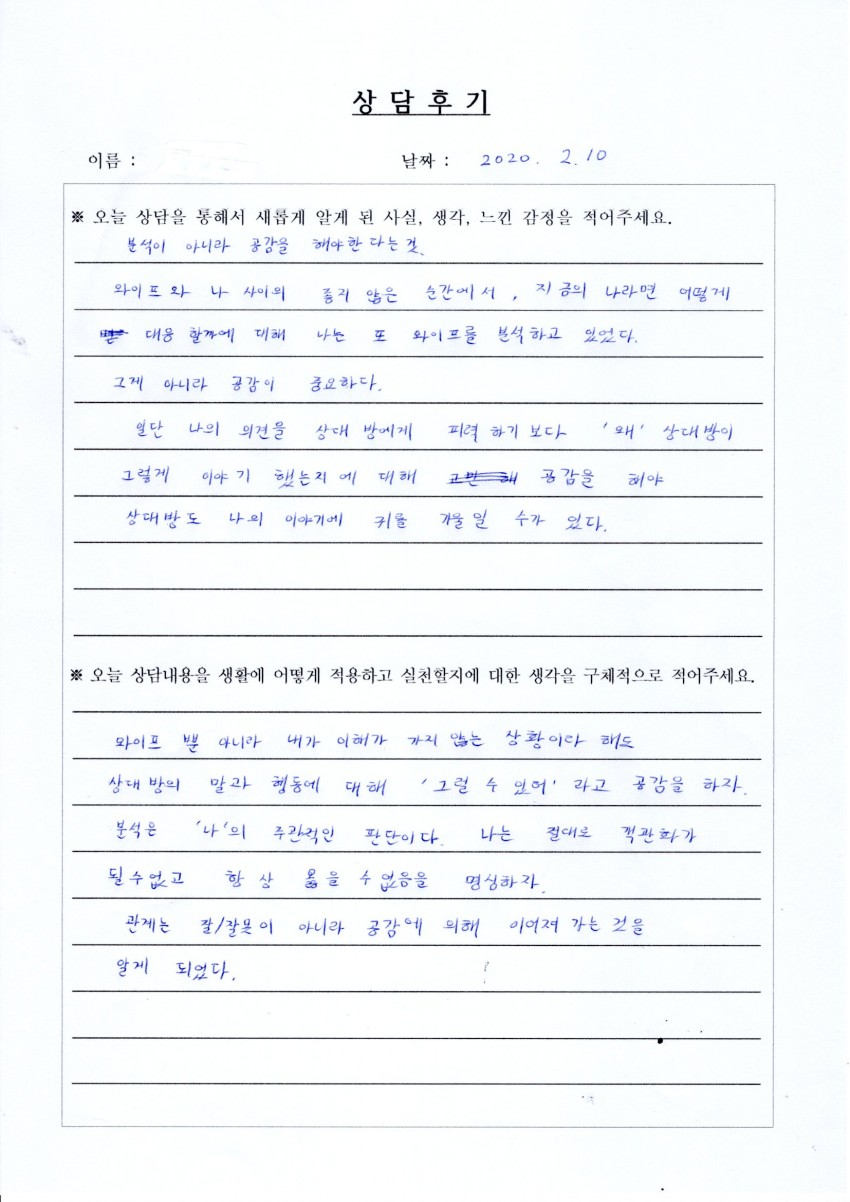 상 담 후 기
이름 :
날짜 : 2020. 2. 10
※ 오늘 상담을 통해서 새롭게 알게 된 사실, 생각, 느낀 감정을 적어주세요.
분석이 아니라 공감을 해야한다는것.
와이프와 나 사이의 좋지 않은 순간에서, 지금의 나라면 어떻게
대응 할까에 대해 나는 또 와이프를 분석하고 있었다.
그게 아니라 공감이 중요하다.
일단 나의 의견을 상대 방에게 피력 하기 보다 '왜' 상대방이
그렇게 이야기 했는지에 대해 고민해 공감을 해야
상대방도 나의 이야기에 귀를 기울일 수가 있다.
※ 오늘 상담내용을 생활에 어떻게 적용하고 실천할지에 대한 생각을 구체적으로 적어주세요.
와이프 뿐 아니라 내가 이해가 가지 않는 상황이라 해도
상대방의 말과 행동에 대해 '그럴 수 있어' 라고 공감을 하자.
분석은 '나'의 주관적인 판단이다. 나는 절대로 객관화가
될수없고 항상 옳을 수 없음을 명심하자.
관계는 잘/잘못이 아니라 공감에 의해 이어져 가는 것을
알게 되었다.